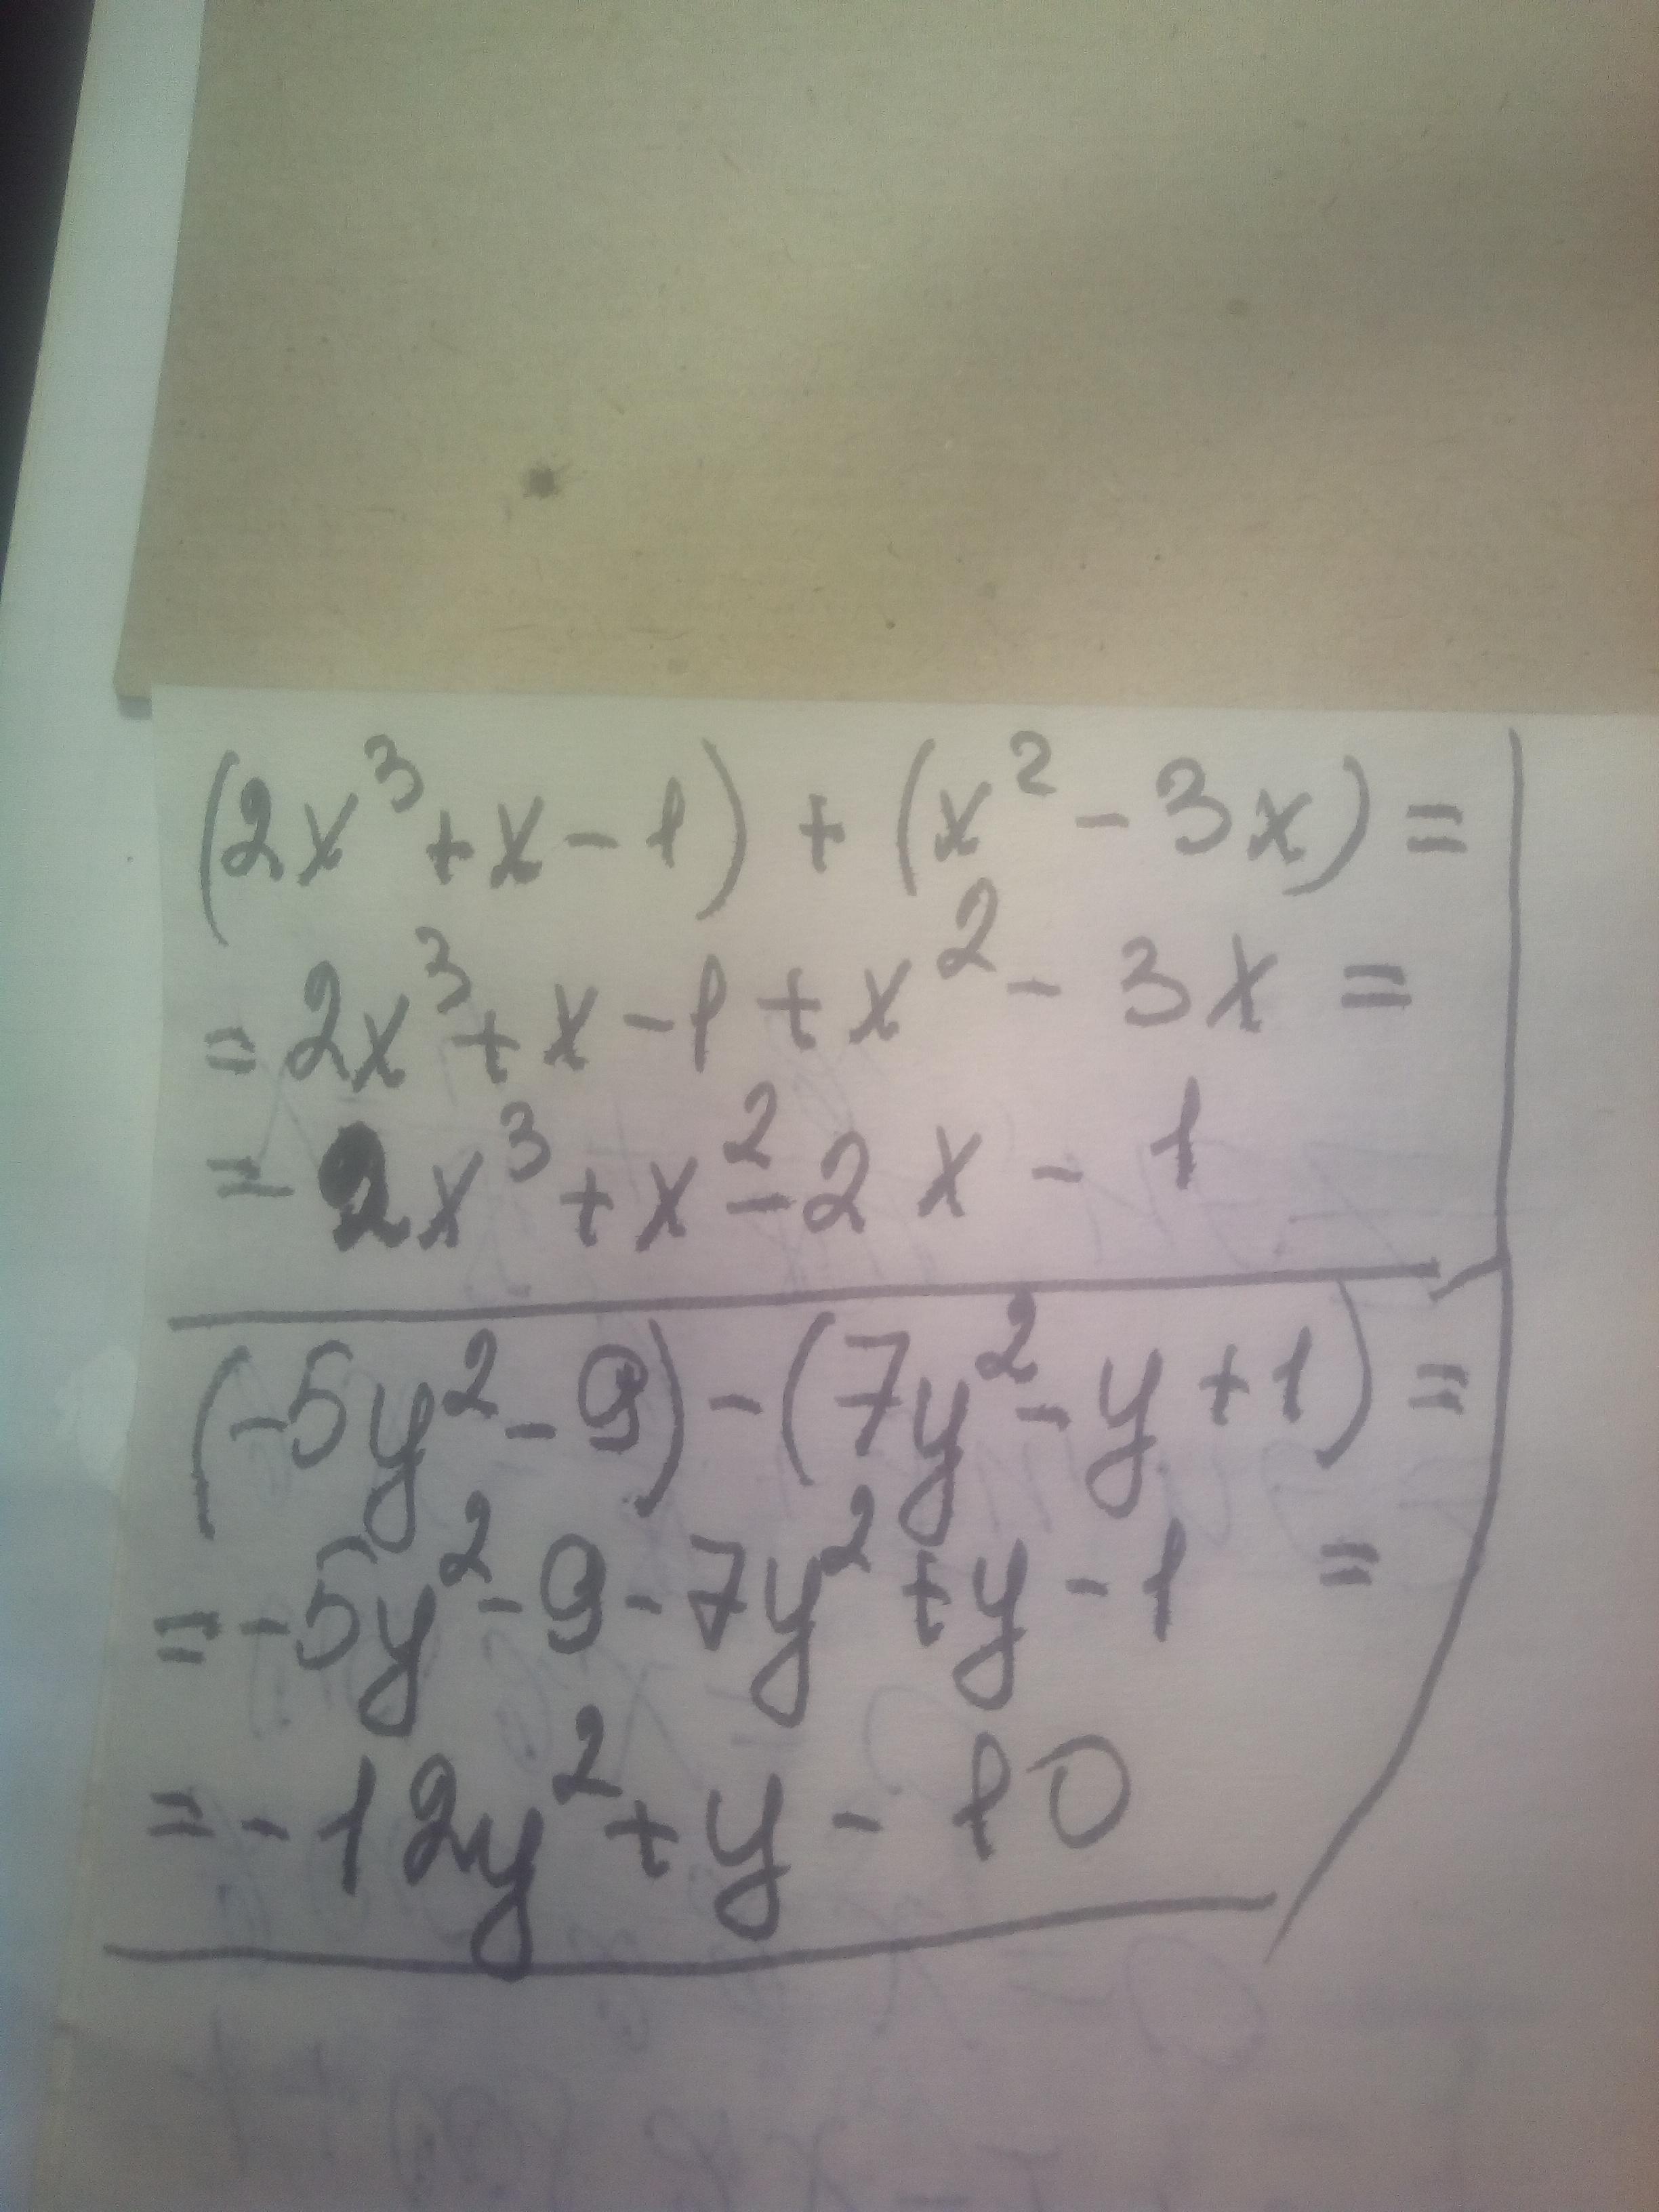 (2x³+x-1)+(x²-3x)=
=2x³+x-1+x²-3x=
=2x³+x²-2x-1
(-5y²-9)-(7y²-y+1)=
=-5y²-9-7y²+y-1=
=-12y²+y-10